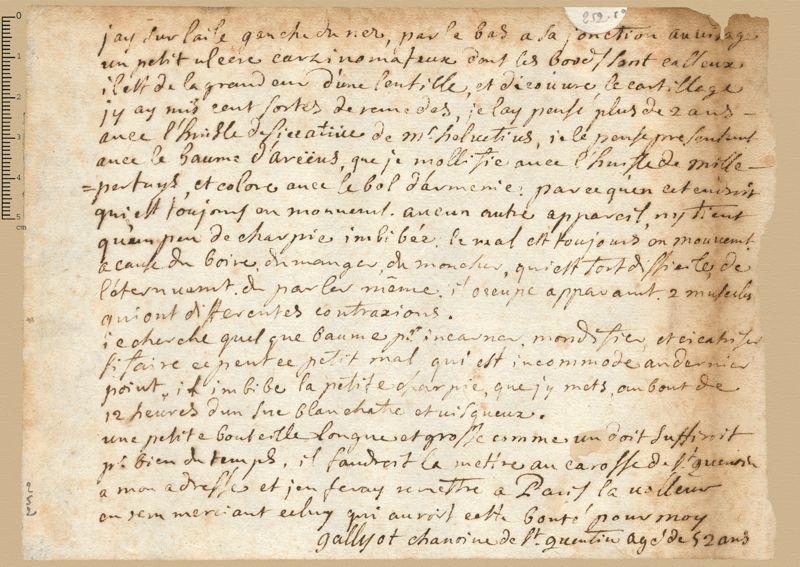 252. 50
jay sur laile gauche du nez, par le bas a sa jonction au visage
un petit ulcere carzinomateux dont les bords sont calleux
il est de la grandeur d'une lentille, et découvre le cartillage
jy ay mis cent sortes de remedes, je lay pensé plus de 2 ans -
avec l'huisle desiccative de mr helvetius, ie le pense presentemt
avec le baume d'arcëus, que je mollifie avec l'huisle de mille -
= pertuys, et colore avec le bol d'armenie. parce quen cet endroit
qui est toujours en mouvemt. aucun autre appareil, ny tient
qu'un peu de charpie imbibée. le mal est toujours en mouvemt.
a cause du boire, du manger, du moucher, qui est fort difficile, de
l'éternuemt. du parler meme. il occupe apparamt. 2 muscles
qui ont differentes contraxions.
ie cherche quelque baume pr. incarner. mondifier, et cicatriser
si faire ce peut ce petit mal, qui est incommode au dernier
point, il imbibe la petite charpie, que jy mets, au bout de
12 heures d'un suc blanchatre et visqueux.
une petite bouteille longue et grosse comme un doit suffiroit
pr. bien du temps, il faudroit la mettre au carosse de st. quentin
a mon adresse et jen feray remettre a Paris la valleur
en remerciant celuy qui auroit cette bonté pour moy
gallyot chanoine de st. quentin agé de 52 ans
0
1
2
3
4
5
cm